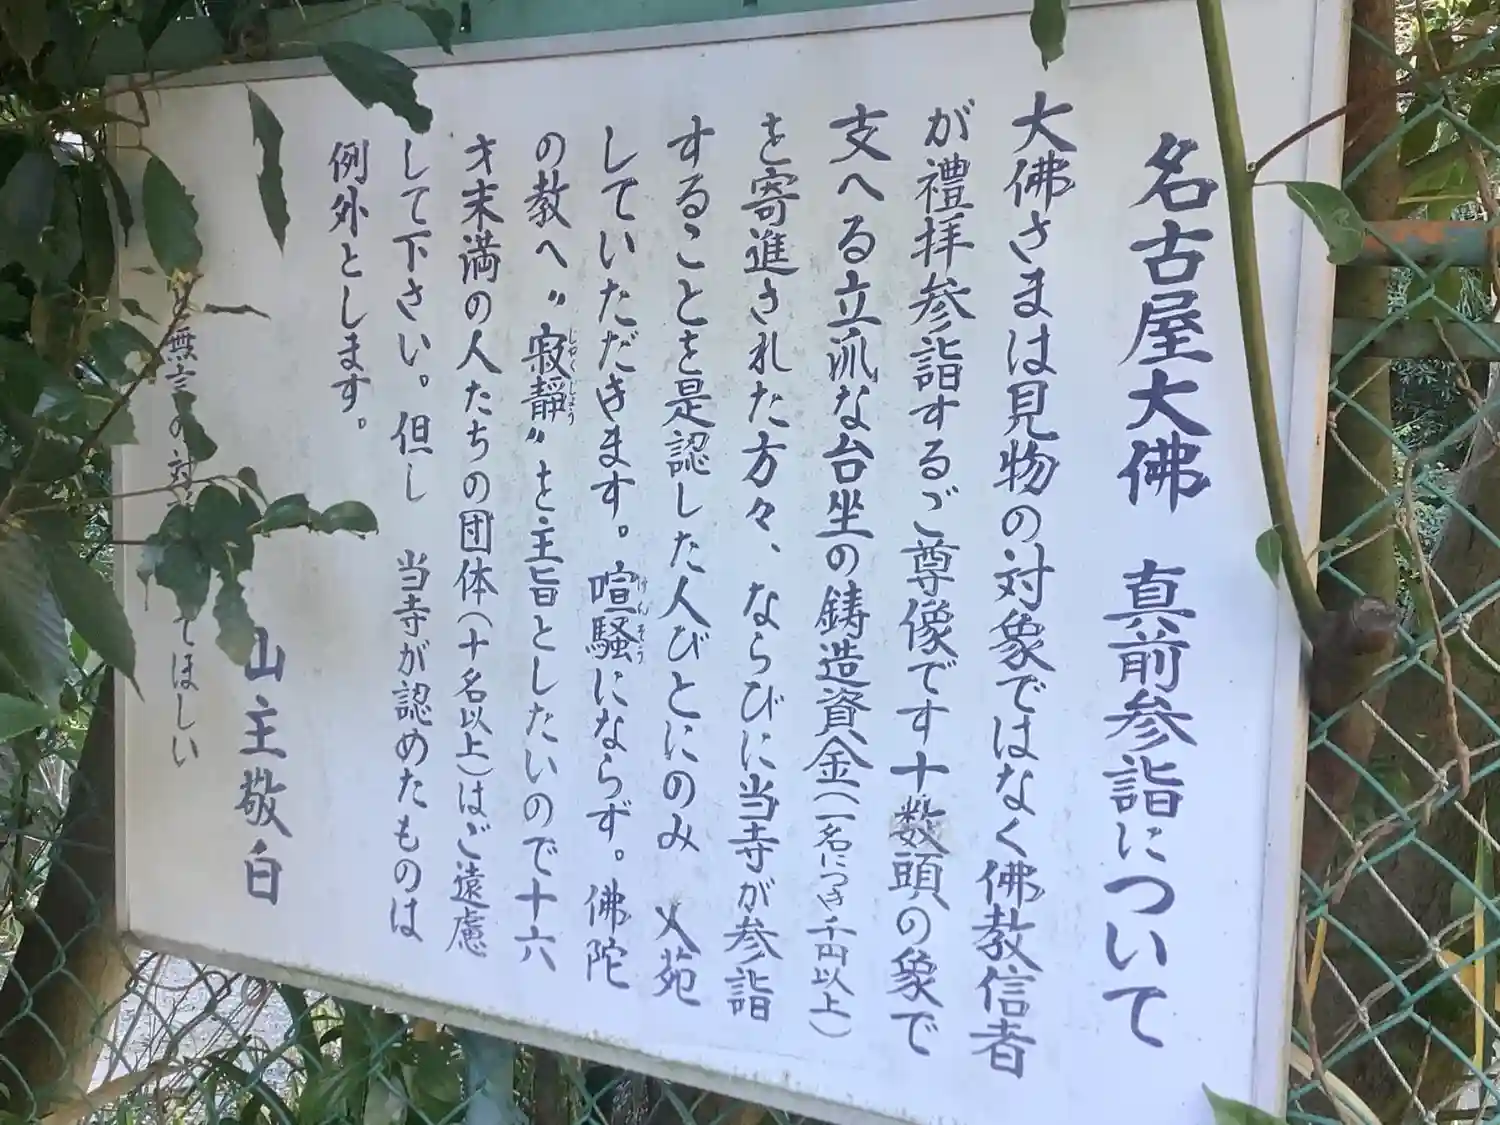 名古屋大佛　真前参詣について
大佛さまは見物の対象ではなく佛教信者
が禮拝参詣するご尊像です十数頭の象で
支へる立派な台坐の鋳造資金(一名につき千円以上)
を寄進された方々、ならびに当寺が参詣
することを是認した人びとにのみ　入苑
していただきます。喧騒にならず。佛陀
けんそう
の教へ〃寂靜〃を主旨としたいので十六
じゃくじょう
才末満の人たちの団体(十名以上)はご遠慮
して下さい。但し　当寺が認めたものは
例外とします。
山主敬白
無言の対
てほしい